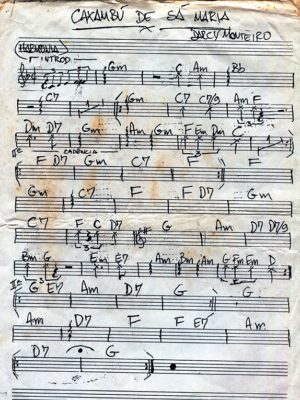 CAXAMBÚ DE SÁ MARIA
DARCY MONTEIRO
HARMONIA
INTROD.
Gm C Am Bb
C7 Gm C7 C7/9 Am F
Dm D7 Gm Am Gm F Em Dm C
CADÊNCIA
F D7 Gm C7 F F
Gm C7 F F D7 Gm
C7 F C D7 G Am D7 D7/9
Bm G Em E7 Am Bm Am G Em D
G E7 Am D7 G G
Am D7 F F E7 Am
D7 G